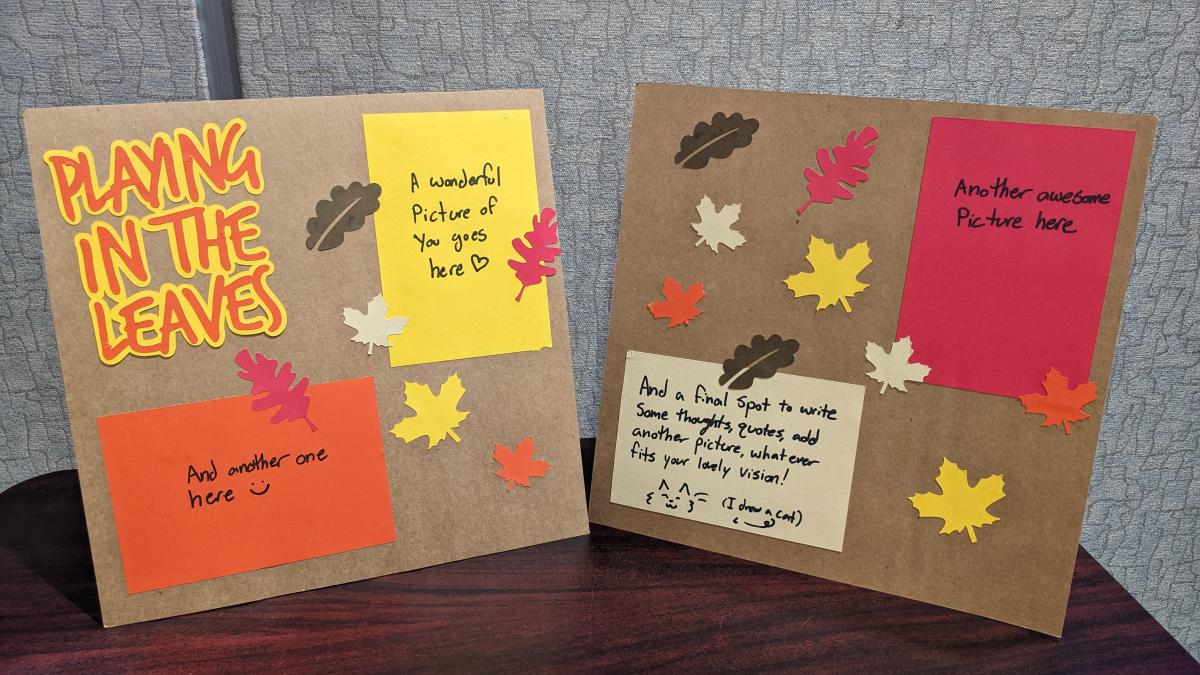 PLAYING
IN THE
LEAVES
A wonderful
Picture of
You goes
here ♡
And another one
here
Another awesome
Picture here
And a final spot to write
Some thoughts, quotes, add
another picture, whatever
fits your lovely vision!
(I drew a cat)